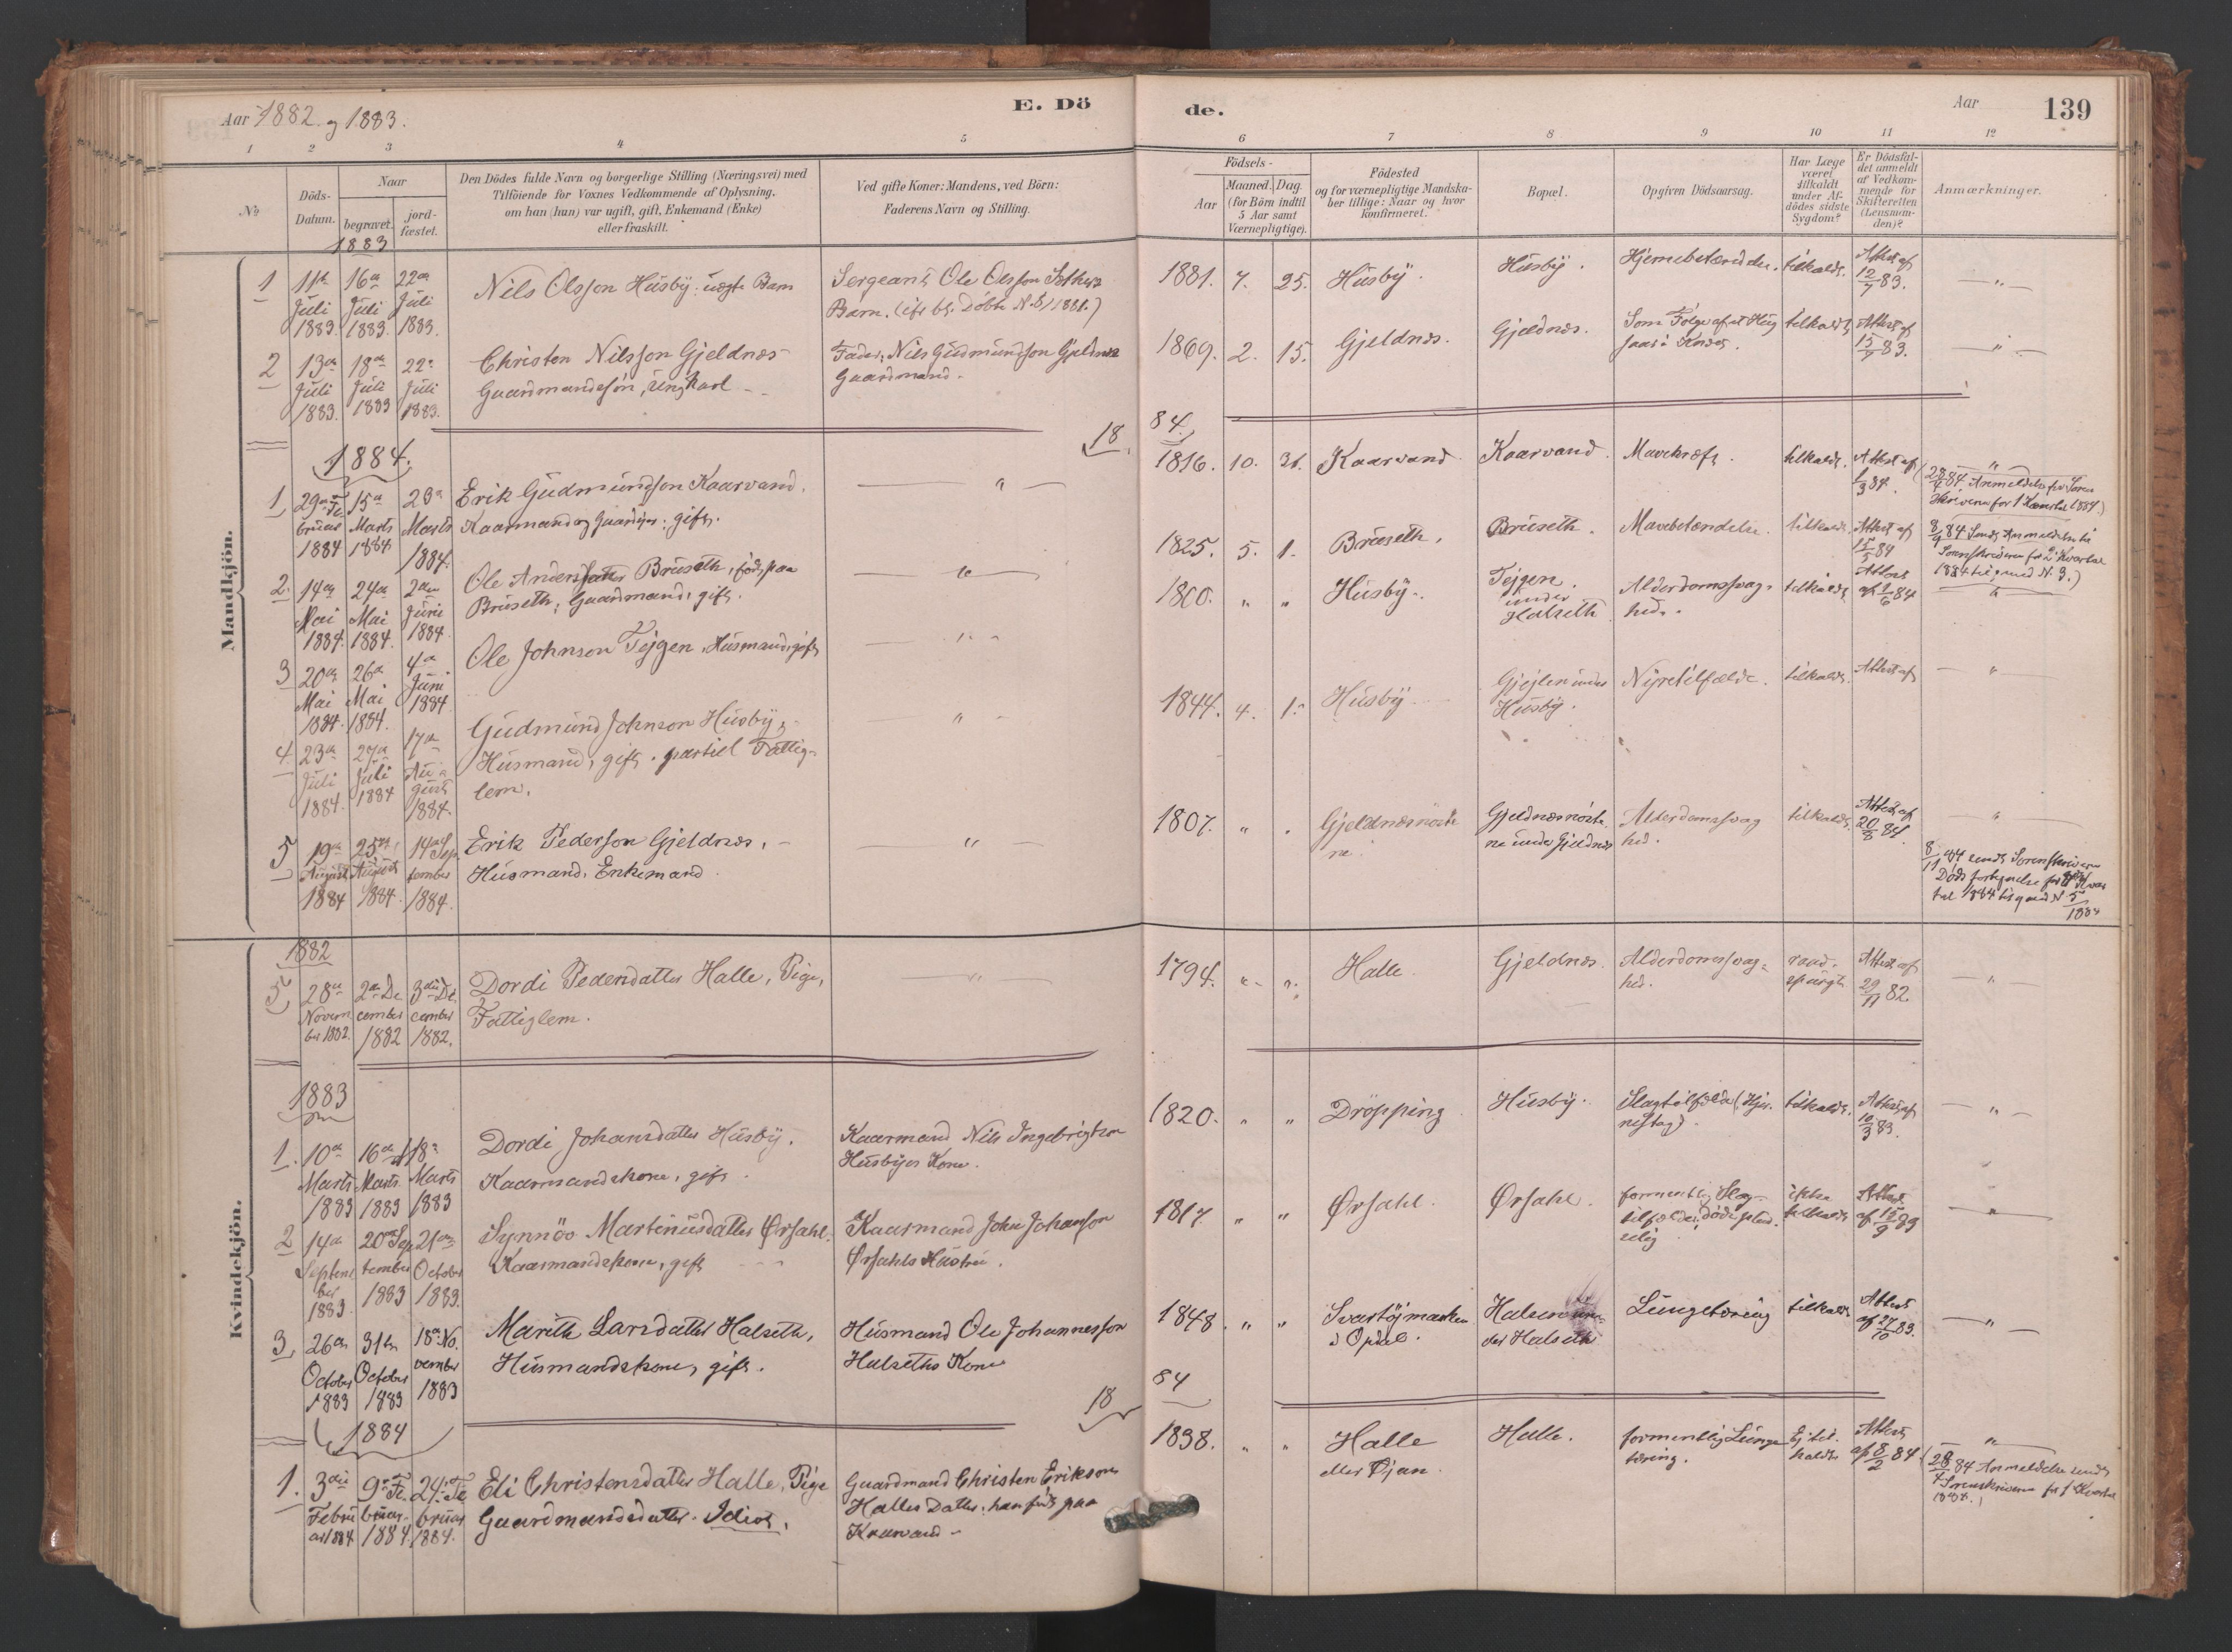 Aar 1882 og 1883.
E. Dö
de.
Aar
139
1 2 3 4 5 6 7 8 9 10 11 12
№
Döds-
Datum.
Naar
begravet.
jord-
fæstet.
Den Dödes fulde Navn og borgerlige Stilling (Næringsvei) med
Tilföiende for Voxnes Vedkommende af Oplysning,
om han (hun) var ugift, gift, Enkemand (Enke)
eller fraskilt.
Ved gifte Koner: Mandens, ved Börn:
Faderens Navn og Stilling.
Födsels-
Aar
Maaned. Dag.
(for Börn indtil
5 Aar samt
Værnepligtige).
Födested
og for værnepligtige Mandska-
ber tillige: Naar og hvor
konfirmeret.
Bopæl.
Opgiven Dödsaarsag.
Har Læge
været
tilkaldt
under Af-
dödes sidste
Sygdom?
Er Dödsfal-
det anmeldt
af Vedkom-
mende for
Skifteretten
(Lensman-
den)?
Anmærkninger.
Mandkjön.
1883
1
11te Juli 1883.
16de Juli 1883.
22de Juli 1883.
Nils Olsson Husby. uægte Barn
Sergeant Ole Olsson
Barn. Døbte 1881.)
1881. 7. 25.
Husby.
Husby.
Hjernebetændelse.
tilkaldt.
Attest af 12/7 83.
"
2
13de Juli 1883.
18de Juli 1883
22de Juli 1883.
Christen Nilsson Gjeldnæs
Gaardmandssøn, ungkarl
Fader: Nils Gudmundson Gjeldnæs
Gaardmand.
1869. 2. 15.
Gjeldnæs.
Gjeldnæs.
Som Følge af et Hug
i Knæet.
tilkaldt
Attest af 15/7 83.
"
1884.
18
84.
1
29de Februar 1884
15de Marts 1884
23de Marts 1884.
Erik Gudmundson Kaarvand.
Kaarmand og . gift.
"
1816. 10. 31.
Kaarvand
Kaarvand.
Mavekræft.
tilkaldt.
Attest af 1/3 84.
"
(28/4 84 Anmeldelse for Soren
skriveren for 1 Kvartal 1884.)
2.
14de Mai 1884.
24de Mai 1884.
2den Juni 1884.
Ole Anders Bruseth, født paa
Bruseth, Gaardmand, gift.
"
1825. 5. 1.
Bruseth.
Bruseth.
Mavebetændelse.
tilkaldt.
Attest af 15/5 84
8/9 84 Sendt Anmeldelse til
Sorenskriveren for 2. Kvartal
1884 til og med N. 3.)
3
20de Mai 1884.
26de Mai 1884.
4de Juni 1884
Ole Johnson Tejgen, Husmand, gift
"
1800. " "
Husby.
Tejgen
under
Halseth
Alderdomssvag-
hed.
tilkaldt
Attest
af /6 84
"
4.
23de Juli 1884.
27de Juli 1884
17de August 1884.
Gudmund Johnson Husby,
Husmand, gift. partiel Fattig-
lem.
"
1844. 4. 1.
Husby
under
Husby.
Nyretilfælde.
tilkaldt.
Attest af
"
5
19de August 1884
25de August 1884.
14de September 1884.
Erik Pederson Gjeldnæs,
Husmand, Enkemand.
"
1807. " "
Gjeldnæsnöste
ne.
Gjeldnæsnöste
ne under Gjeldnæs
Alderdomssvag
hed.
tilkaldt
Attest af 20/8 84.
"
8/11 84 sendt Sorenskriveren
Dødsfortegnelse for Kvar
tal 1884 til og med N 5/1884
Kvindekjön.
1882
5
28de November 1882.
2den December 1882
3die December 1882.
Dordi Pedersdatter Halle, Pige,
Fattiglem.
"
1794. " "
Halle.
Gjeldnæs.
Alderdomssvag-
hed.
raad-
spurgt.
Attest af 29/11 82.
"
1883
1.
10de Marts 1883
16de Marts 1883
18de Marts 1883
Dordi Johansdatter Husby.
Kaarmandskone, gift.
Kaarmand Nils Ingebrigtson
Husbyes Kone.
1820. " "
Dröpping.
Husby.
Slagtilfælde (Hjer-
neslag).
tilkaldt.
Attest af 10/3 83.
"
2
14de September 1883
20de September 1883
21de October 1883.
Synnöv Martinusdatter Ørsahl.
Kaarmandskone, gift
Kaarmand John Johanson
Ørsahls Hustru.
1817. " "
Ørsahl.
Ørsahl.
formentlig Slag-
tilfælde, døde plud-
selig
ikke
tilkaldt
Attest
af 15/9 83
"
3.
26de October 1883
31te October 1883
18de November 1883
Marith Larsdatter Halseth,
Husmandskone, gift.
Husmand Ole Johannesson
Halseths Kone
1848. " "
Svartöjmarken
i Opdal.
un-
der Halseth
Lungetæring
tilkaldt
Attest
af 27/10 83.
"
1884
18
84
1.
3die Februar 1884
9de Februar 1884.
24de Februar 1884.
Eli Christensdatter Halle, Pige
Gaardmandsdatter. Idiot.
Gaardmand Christen Eriksons
Halles Datter. han født paa
Kaarvand.
1838. " "
Halle
eller Øjan.
Halle.
formentlig Lunge
tæring.
Ej til-
kaldt
Attest
af 8/2 84.
"
(28/4 84 Anmeldelse sendt
Sorenskriveren for 1 Kvartal
1884.)